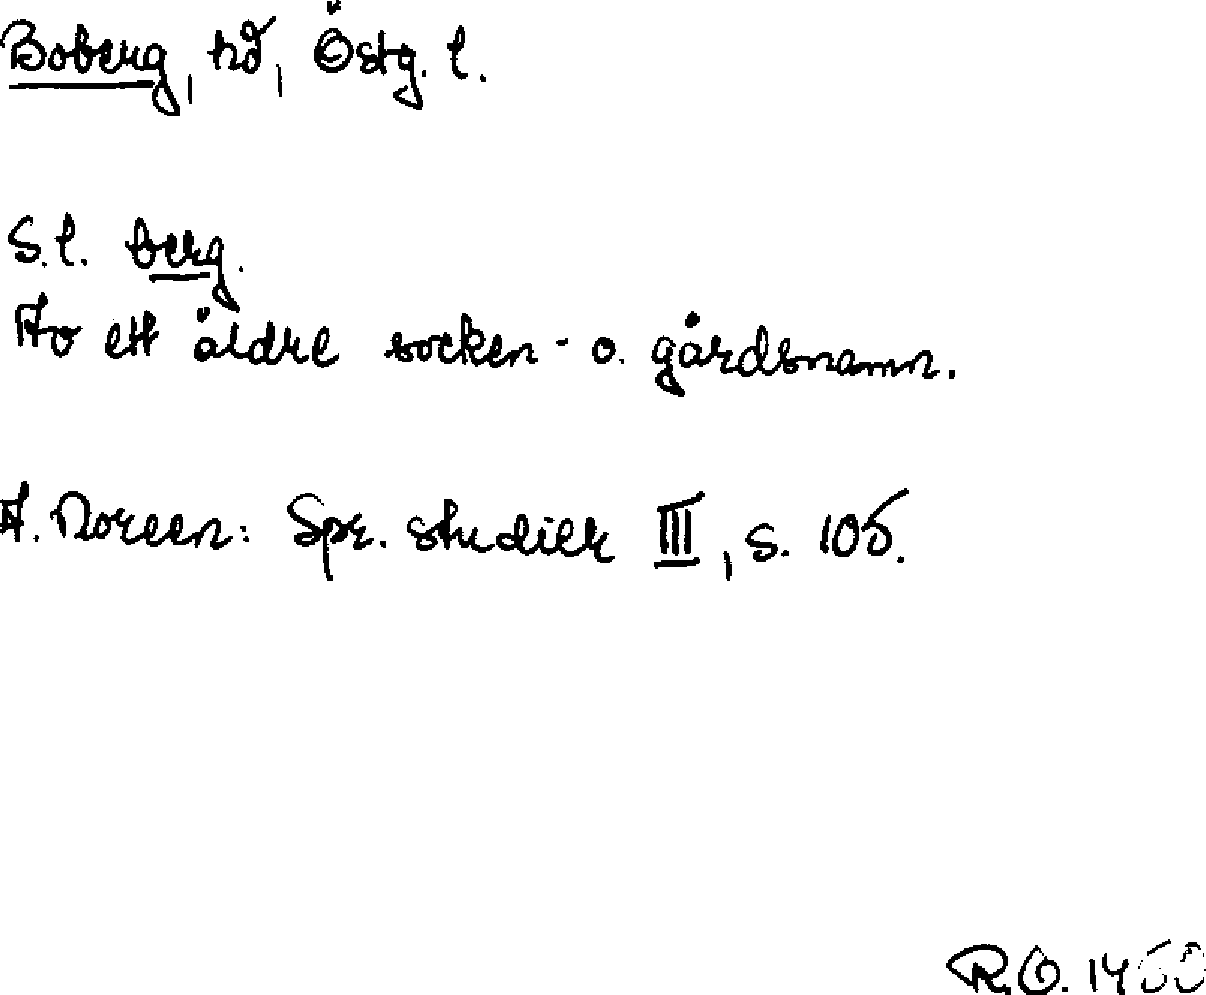 Boberg, hd, Östg. l.
S.l. berg.
Av ett äldre socken- o. gårdsnamn.
A. Noreen: Spr. studier III, s. 105.
R.O.